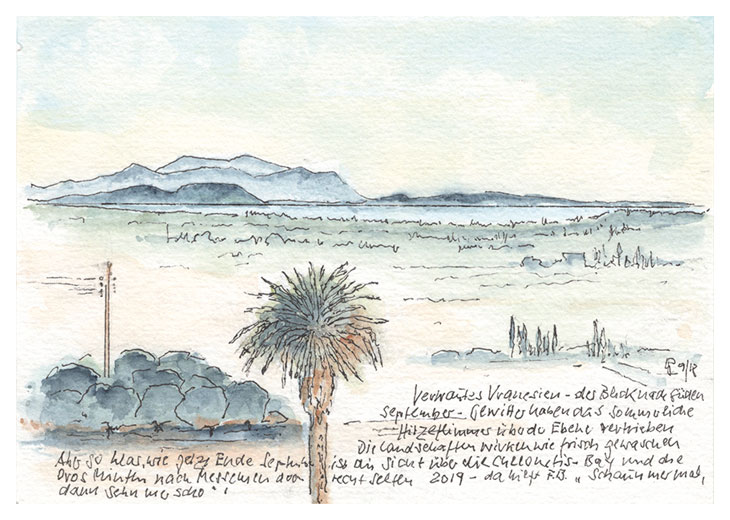 9/18
Vertrautes Vranesien - der Blick nach Süden
September - Gewitter haben das sommerliche
Hitzeflimmern über der Ebene vertrieben
Die Landschaften wirken wie frisch gewaschen
Aber so klar, wie jetzt Ende September ist die Sicht über die Chelonitis-Bay und die
Oros Minthi nach Messenien doch recht selten 2019 - da hilft F.B. "Schaunmermal,
dann sehn mer scho"